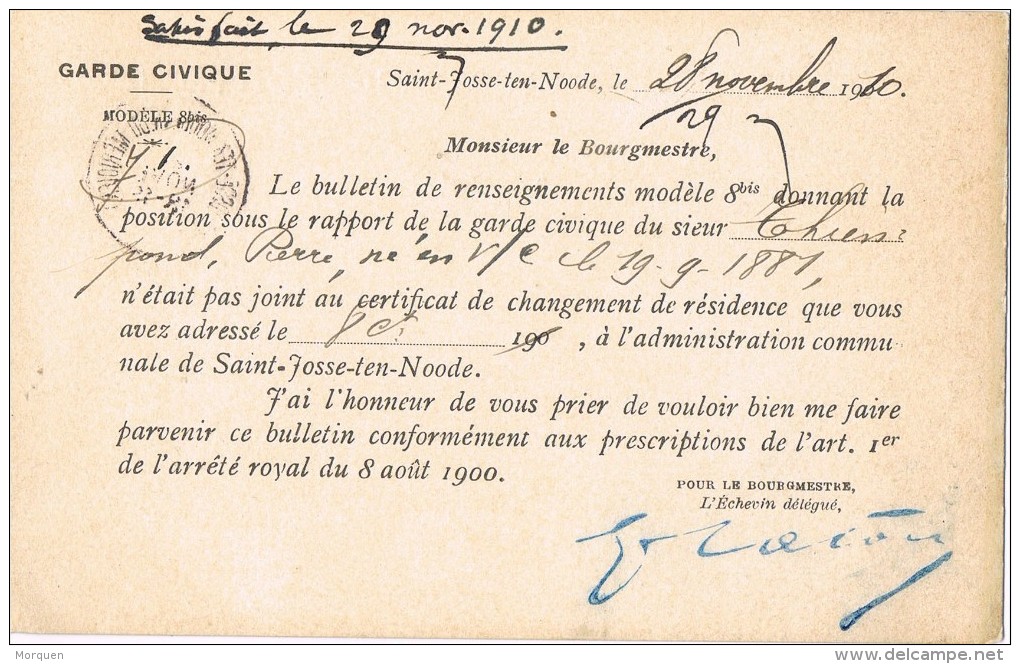 Satisfait le 29 nov. 1910.
GARDE CIVIQUE
Saint-Josse-ten-Noode, le 28 novembre 1910.
MODÈLE 8bis
29
Monsieur le Bourgmestre,
Le bulletin de renseignements modèle 8bis donnant la
position sous le rapport de la garde civique du sieur Thien=
pond, Pierre, né en V/C le 19-9-1881,
n'était pas joint au certificat de changement de résidence que vous
avez adressé le 8 ct 190 , à l'administration commu
nale de Saint-Josse-ten-Noode.
J'ai l'honneur de vous prier de vouloir bien me faire
parvenir ce bulletin conformément aux prescriptions de l'art. 1er
de l'arrêté royal du 8 août 1900.
POUR LE BOURGMESTRE,
L'Échevin délégué,
Morquen
delcampe.net